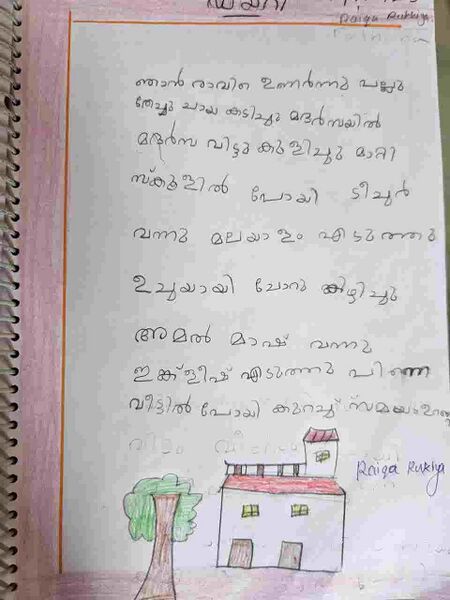 ഡയറി
Raiqa Rukiya
Fathima
ഞാൻ രാവിലെ ഉണർന്നു പല്ലു
തേച്ചു ചായ കുടിച്ചു മദ്രസയിൽ
മദ്രസ വിട്ടു കുളിച്ചു മാറ്റി
സ്കൂളിൽ പോയി ടീച്ചർ
വന്നു മലയാളം എടുത്തു
ഉച്ചയായി ചോറു കഴിച്ചു
അമൽ മാഷ് വന്നു
ഇംഗ്ളീഷ് എടുത്തു പിന്നെ
വീട്ടിൽ പോയി കുറച്ച് സമയം
Raiqa Rukiya